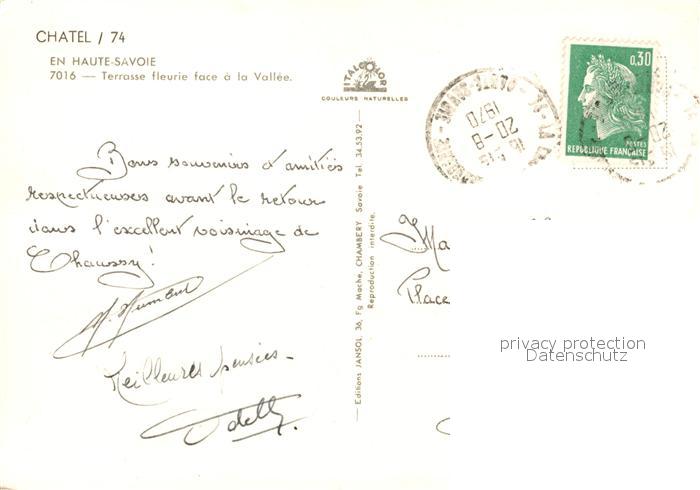 CHATEL / 74
EN HAUTE-SAVOIE
7016 — Terrasse fleurie face à la Vallée.
ITALCOLOR
COULEURS NATURELLES
0,30
POSTES
REPUBLIQUE FRANÇAISE
20-8
1970
Bons souvenirs d'amitiés
respectueuses avant le retour
dans l'excellent voisinage de
Chaussy!
Meilleures pensées -
Odette.
— Editions JANSOL, 36, Fg Mache, CHAMBERY Savoie Tel. 34.53.92 —
Reproduction interdite.
Ma
Place
privacy protection
Datenschutz